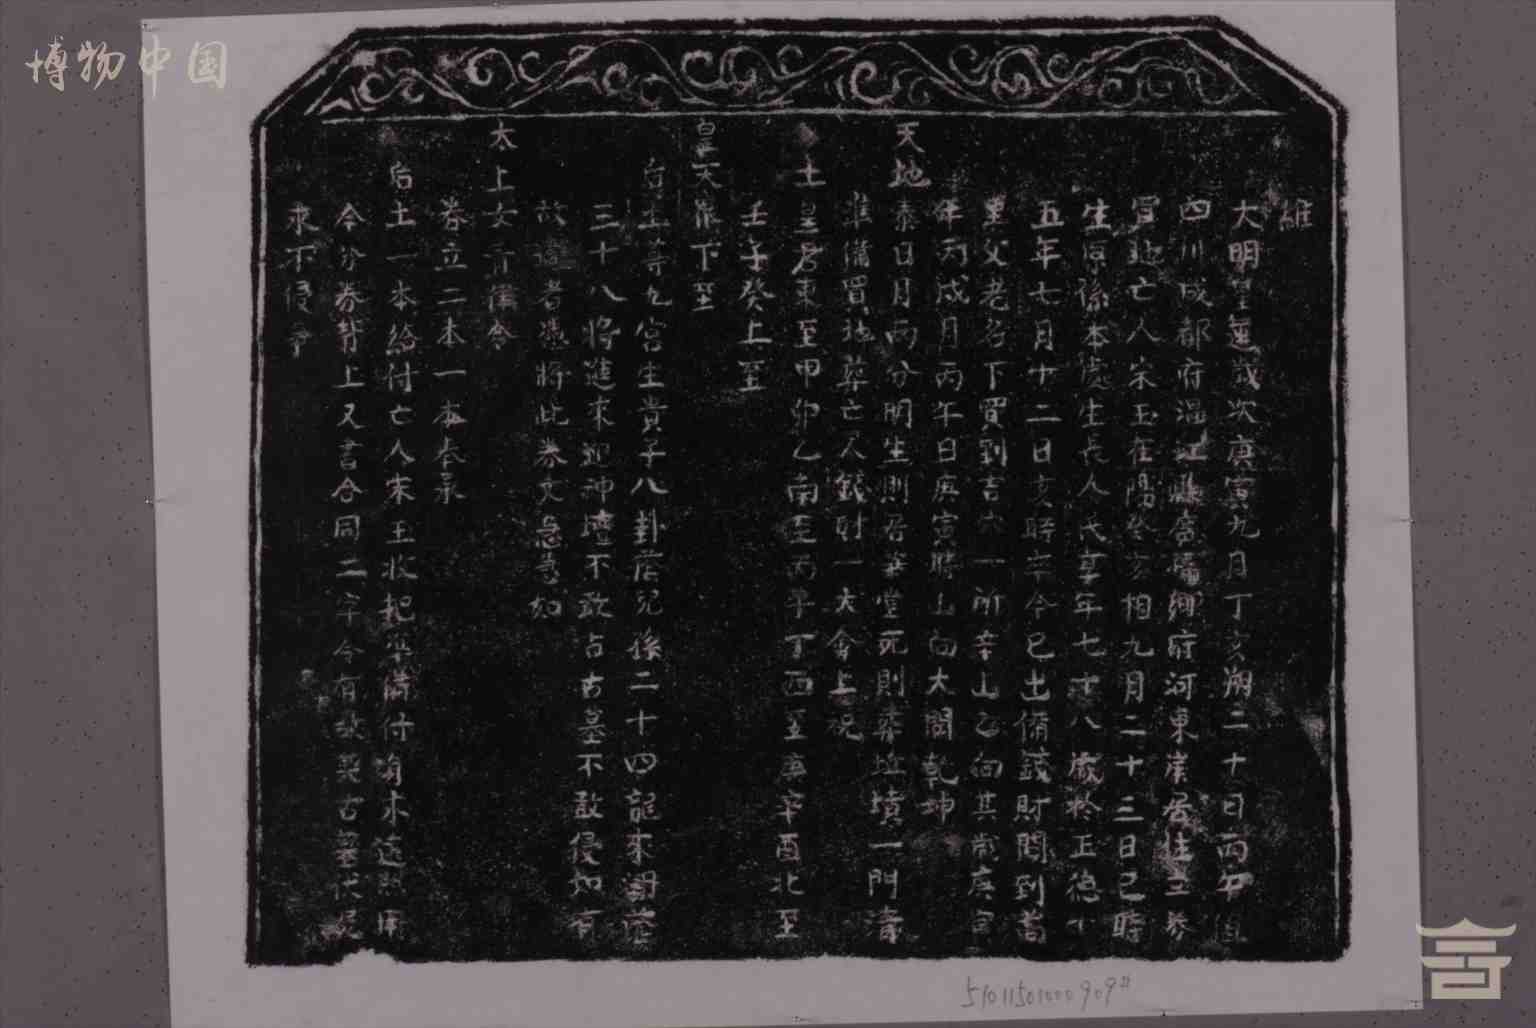 博物中国
維
大明皇 歲次庚寅九月丁亥朔二十日丙午
四川成都府温江縣 鄉府河東 居住立券
買地亡人宋玉在陽癸亥相九月二十三日巳時
生原係本處生長人氏享年七十八歲於正德十
五年七月十二日亥時 今巳出備錢財問到蒿
里父老名下買到吉穴一所辛山乙向其歲庚寅
年丙戍月丙午日庚寅時山向大開乾坤
天地泰日月兩分明生則居華堂死則葬坵墳一門清
準備買地葬亡人銀財一大會上祝
土皇君東至甲卯乙南至丙午丁西至庚辛酉北至
壬子癸上至
皇天 下至
后土 九宮生貴子八卦蔭兒孫二十四龍來 蔭
三十八將進來 神壇不敢占古墓不敢侵如有
故違者憑將此券文急急如
太上女青律令
券立二本一本奉
后土一本給付亡人宋玉收把 備付
今分券背上又書合同二字令有 古墓伏屍
永不侵爭
51011501000909